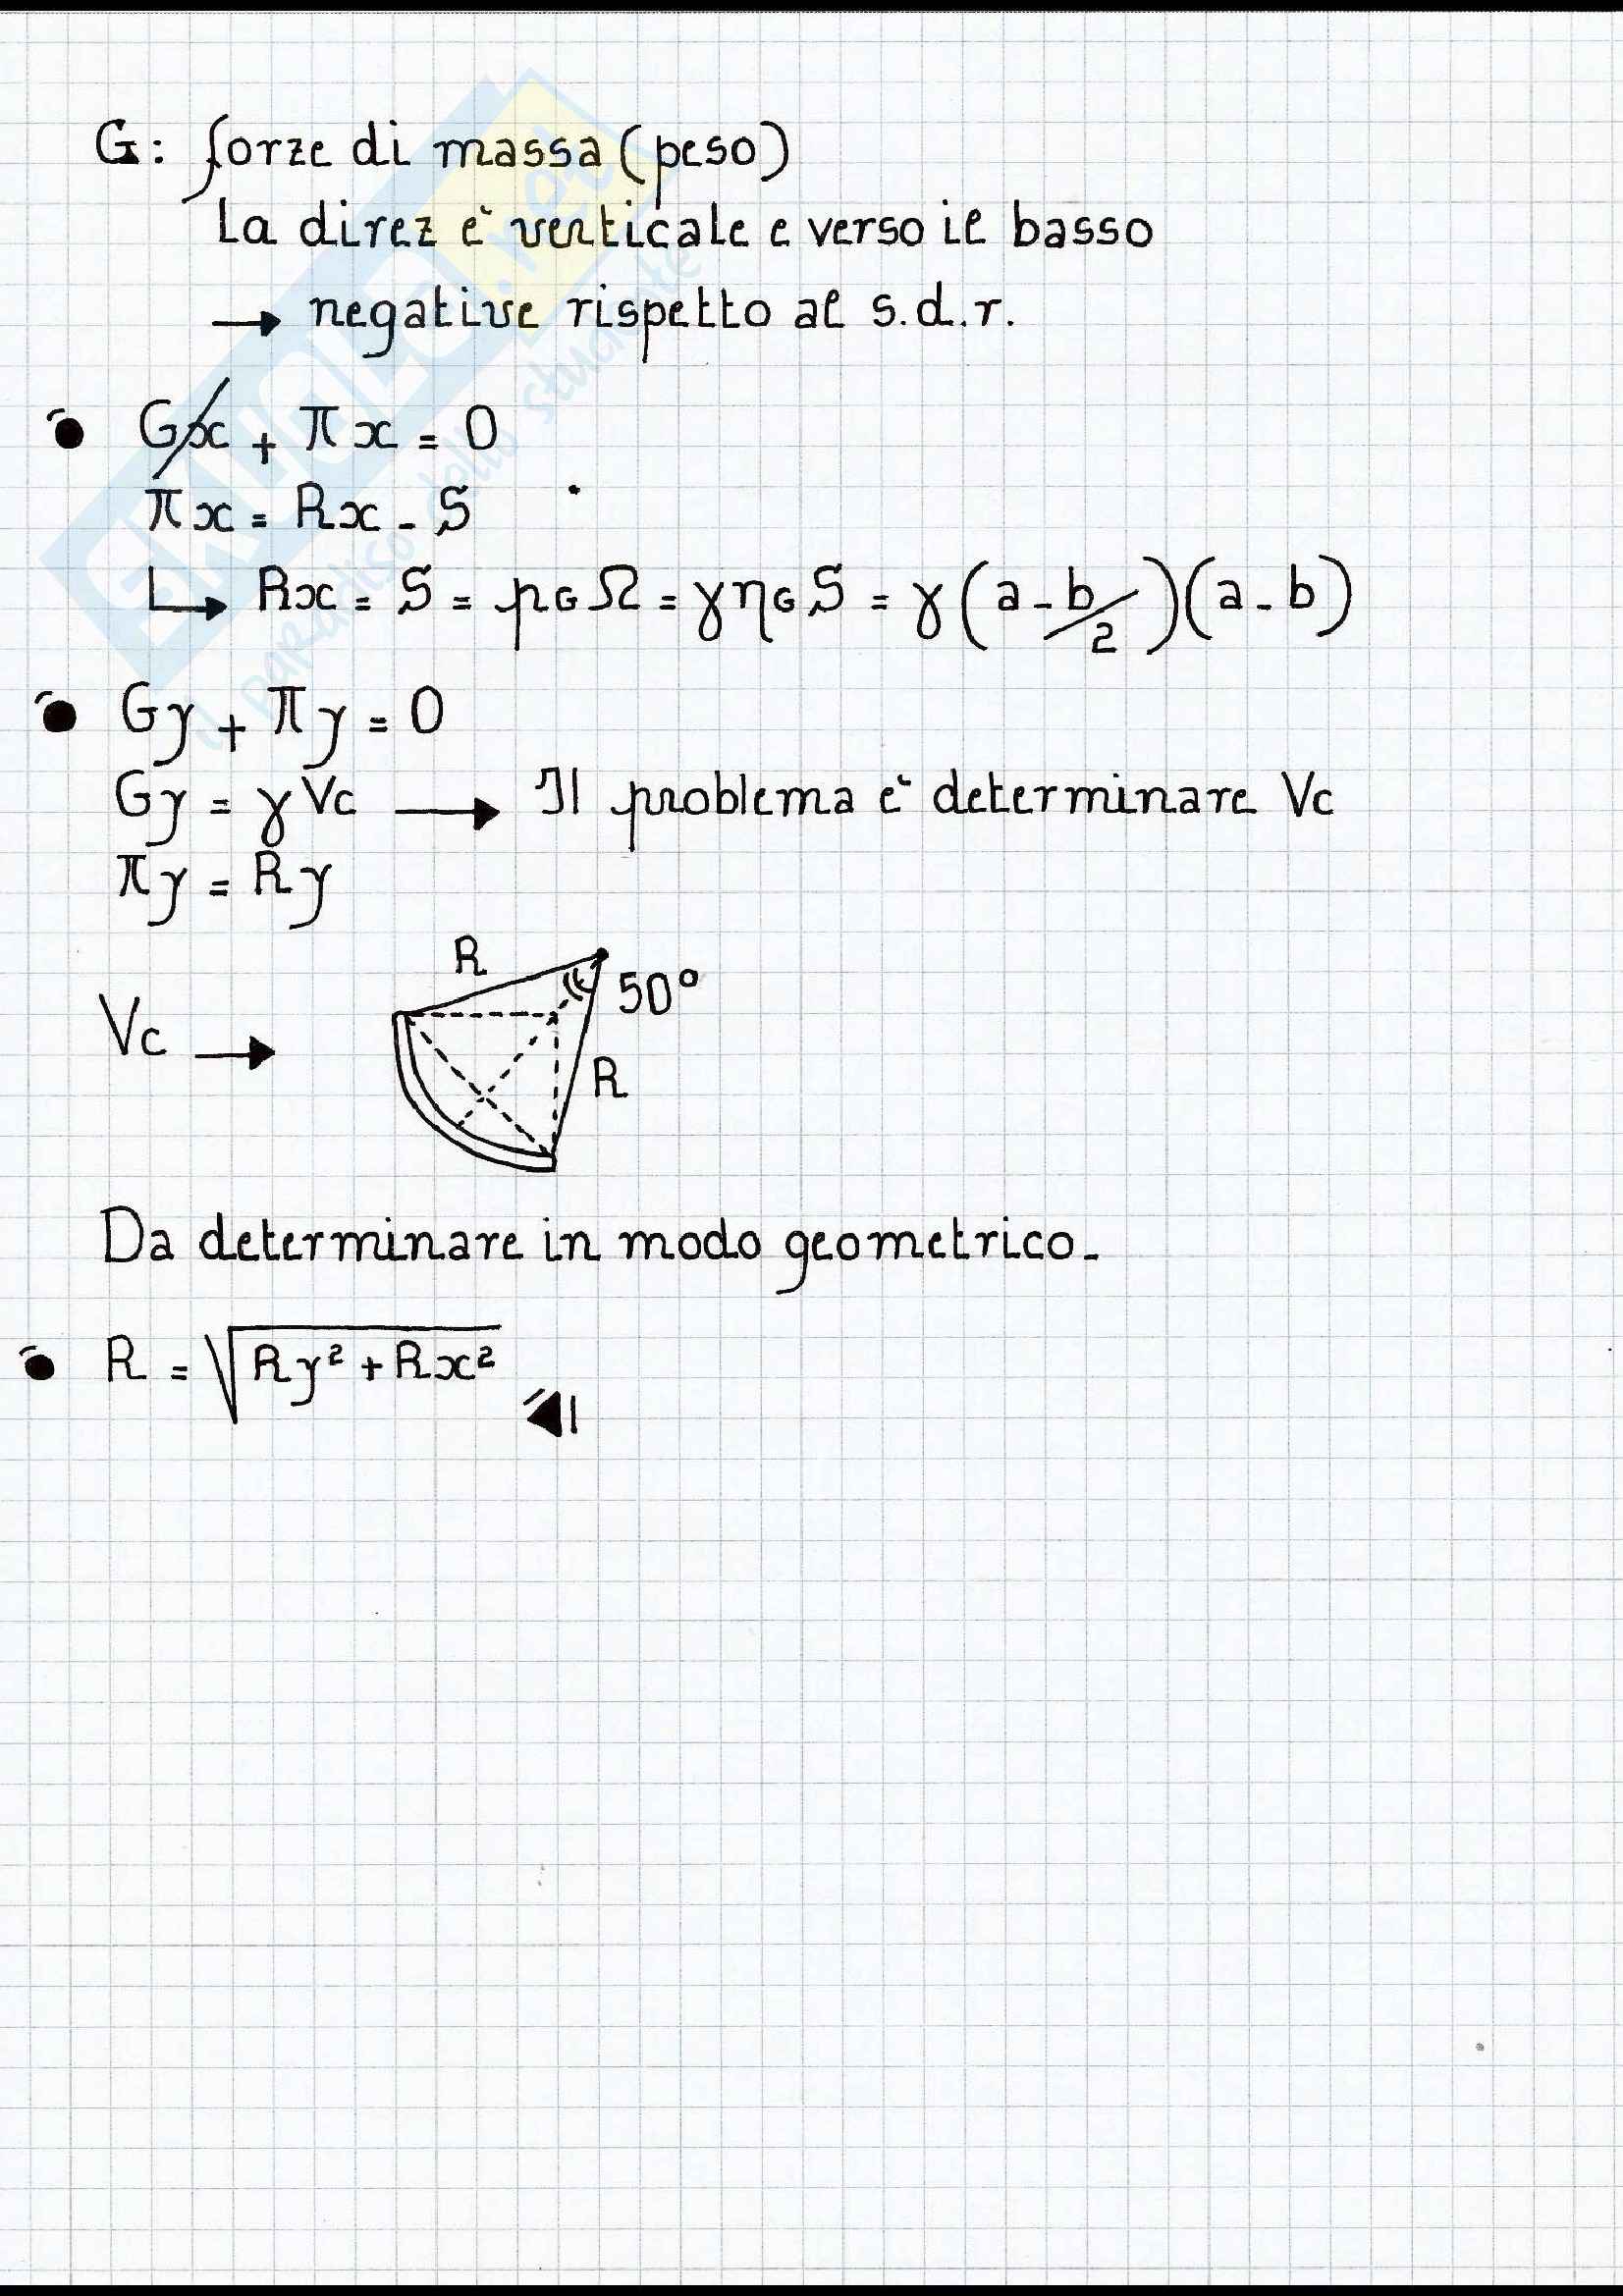 G: forze di massa (peso)
La direz è verticale e verso il basso
→ negative rispetto al s.d.r.
Gx + πx = 0
πx = Rx - S
↳ Rx = S = pG Ω = γ ηG S = γ (a - b/2)(a - b)
Gy + πy = 0
Gy = γ Vc → Il problema è determinare Vc
πy = Ry
R
50°
Vc →
R
Da determinare in modo geometrico.
R = √(Ry² + Rx²)
SKUOLA.net
il paradiso dello studente